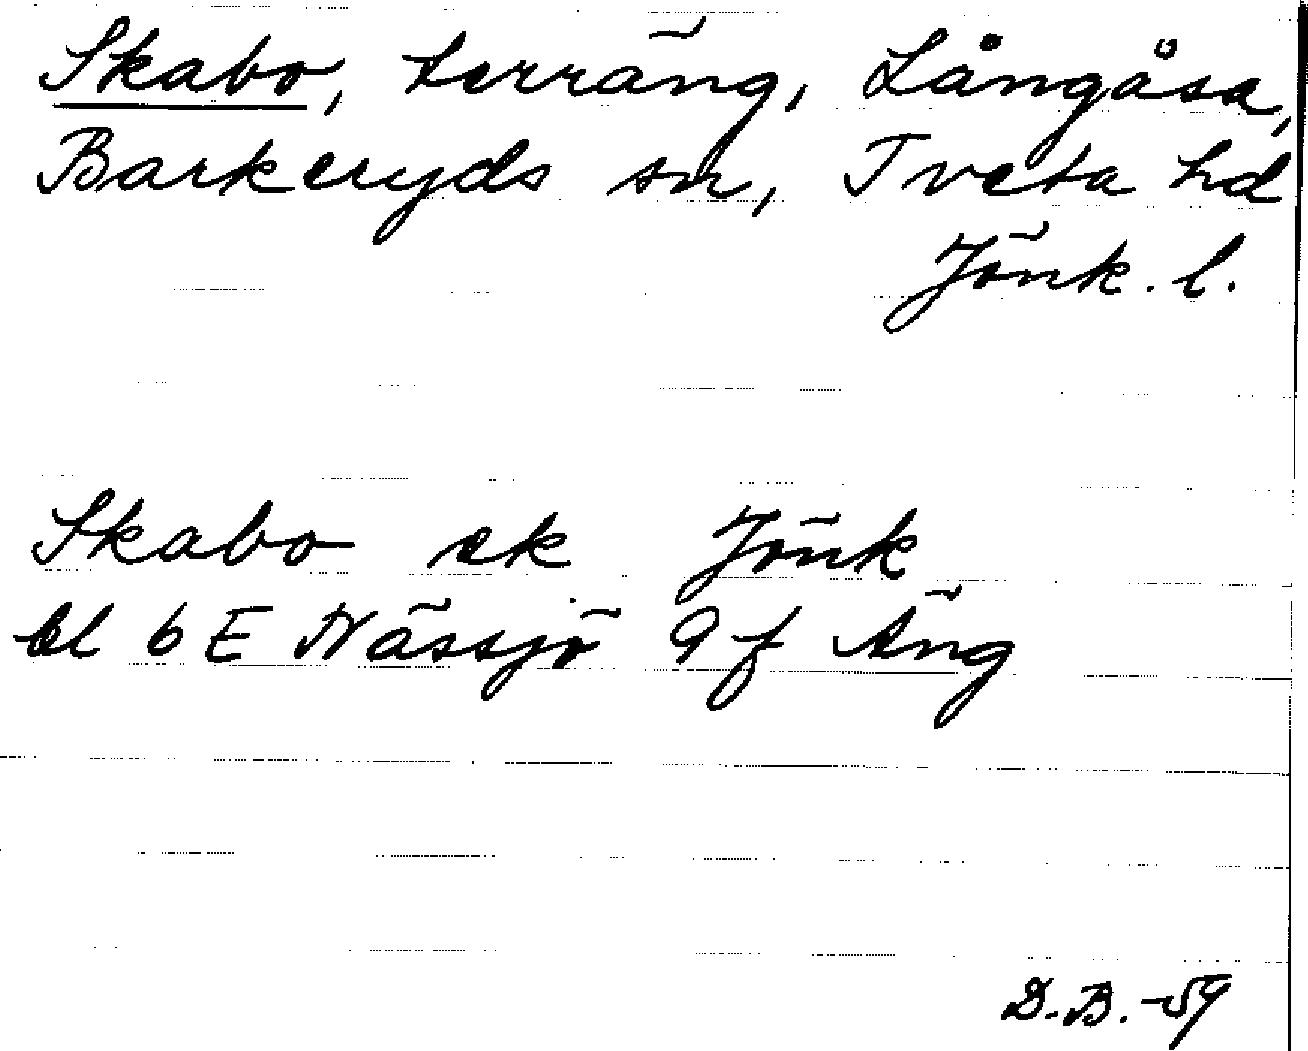 Skabo, terräng, Långåsa,
Barkeryds sn, Tveta hd
Jönk. l.
Skabo ek Jönk
bl 6 E Nässjö 9 f Äng
D.B. -59